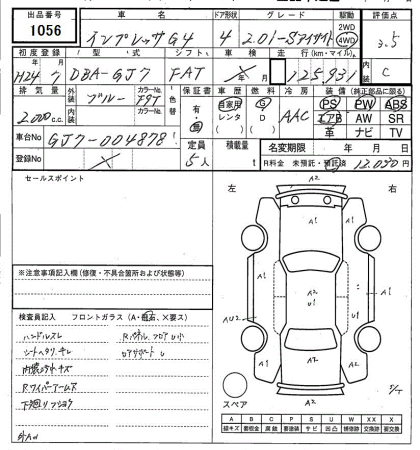 出品番号 車名 ドア形状 グレード 駆動 評価点
1056 インプレッサG4 4 2.0i-Sアイサイト 2WD 4WD 3.5
初度登録 型式 シフト 車検 走行(km・マイル) 内装
H24年 7月 DBA-GJ7 FAT 年 月 125,931 C
排気量 外装 ブルー カラーNo. 色替 保証書 車歴 燃料 冷房 装備(純正部品に限る)
2000c.c. 内装 カラーNo. 有・無 自家用 レンタ G D AAC PS PW ABS
エアB AW SR
革 ナビ TV
車台No GJ7-004878
登録No 定員 5人 積載量 t 名変期限 年 月 日
R料金 未預託・預託済 12,030円
セールスポイント
左 右
A2
A1 A1
A1 A2 U1 A1
AU2 U1
A1 A2 A1
A2
スペア
※注意事項記入欄(修復・不具合箇所および状態等)
検査員記入 フロントガラス(A・飛石、X要ス)
ハンドルスレ
シートヘタリ、キレ
内装ヨゴレ キズ
Rワイパーアームス
下廻りフショク
外AU
A B C P S U W X XX
線キズ 要板金 腐蝕 要塗装 サビ 凹凸 補修跡 交換跡 要交換